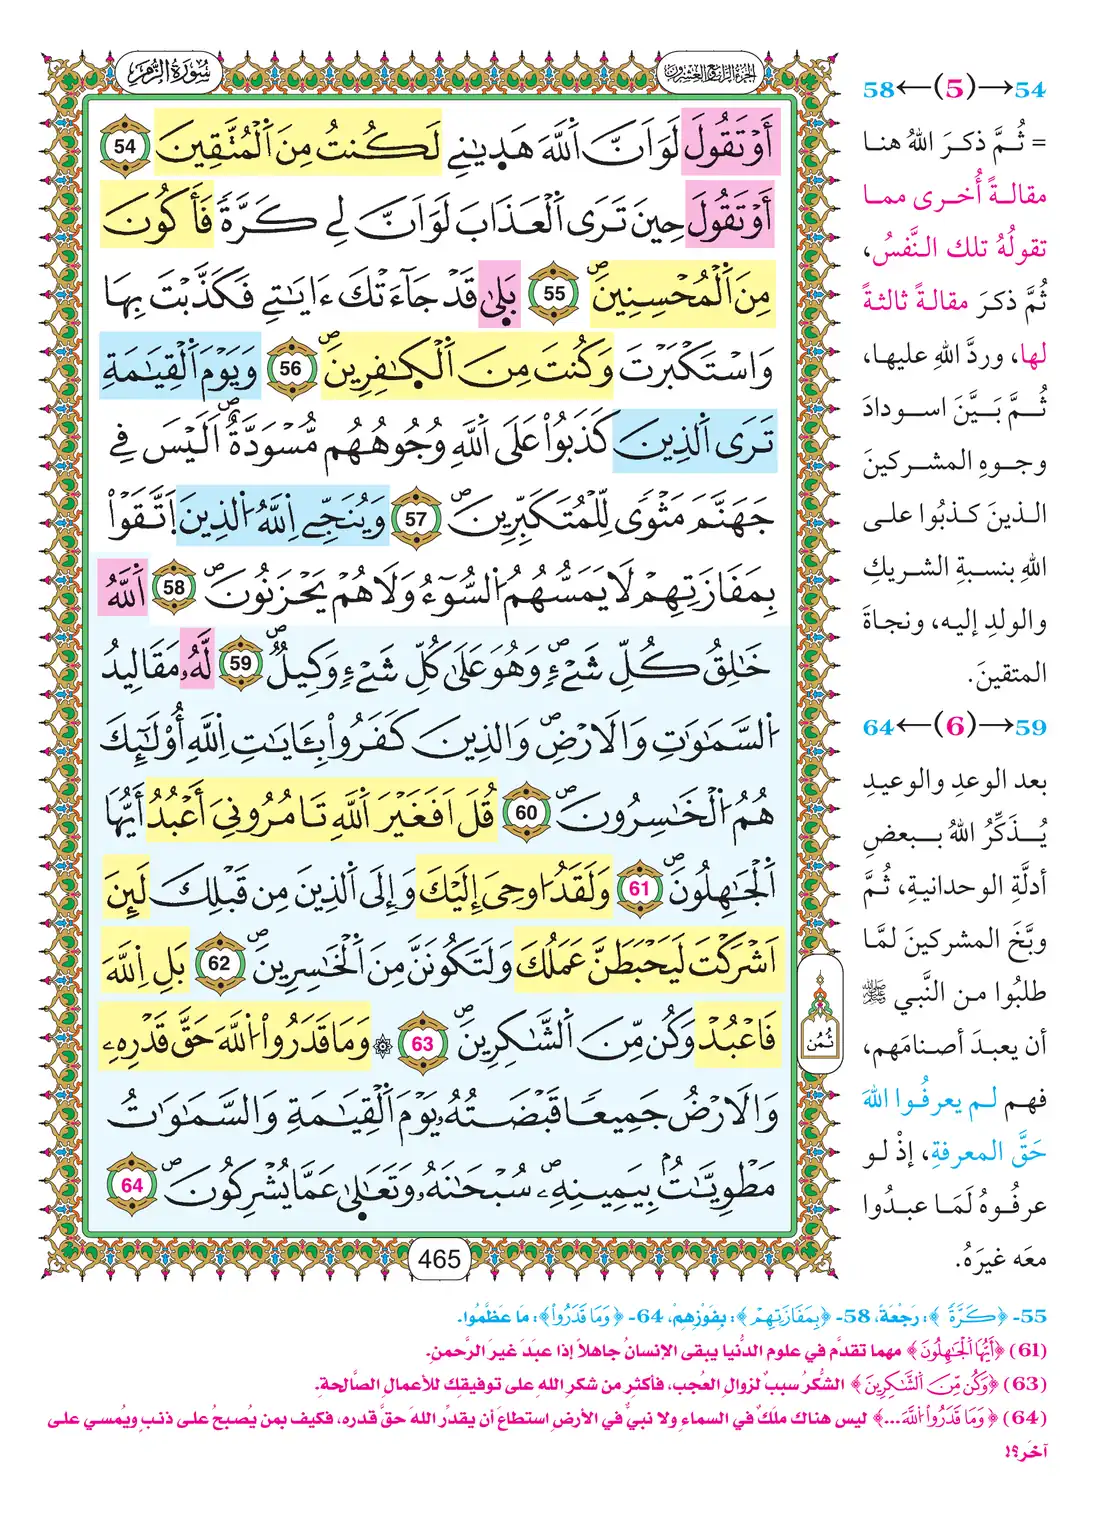 سُورَةُ الزُّمَرِ
الجزء الرابع والعشرون
أَوْ تَقُولَ لَوَ اَنَّ اَ۬للَّهَ هَد۪يٰنِے لَكُنتُ مِنَ اَ۬لْمُتَّقِينَ 54
أَوْ تَقُولَ حِينَ تَرَى اَ۬لْعَذَابَ لَوَ اَنَّ لِے كَرَّةٗ فَأَكُونَ
مِنَ اَ۬لْمُحْسِنِينَۖ 55 بَل۪ىٰ قَدْ جَآءَتْكَ ءَايَٰتِے فَكَذَّبْتَ بِهَا
وَاسْتَكْبَرْتَ وَكُنتَ مِنَ اَ۬لْكٰ۪فِرِينَۖ 56 وَيَوْمَ اَ۬لْقِيَٰمَةِ
تَرَى اَ۬لذِينَ كَذَبُواْ عَلَى اَ۬للَّهِ وُجُوهُهُم مُّسْوَدَّةٌۖ اَلَيْسَ فِے
جَهَنَّمَ مَثْوىٗ لِّلْمُتَكَبِّرِينَۖ 57 وَيُنَجِّے اِ۬للَّهُ اُ۬لذِينَ اَ۪تَّقَوْاْ
بِمَفَازَتِهِمْ لَا يَمَسُّهُمُ اُ۬لسُّوٓءُ وَلَا هُمْ يَحْزَنُونَۖ 58 اَ۬للَّهُ
خَٰلِقُ كُلِّ شَےْءٖۖ وَهُوَ عَلَىٰ كُلِّ شَےْءٖ وَكِيلٞۖ 59 لَّهُۥ مَقَالِيدُ
اُ۬لسَّمَٰوَٰتِ وَالَارْضِۖ وَالذِينَ كَفَرُواْ بِـَٔايَٰتِ اِ۬للَّهِ أُوْلَٰٓئِكَ
هُمُ اُ۬لْخَٰسِرُونَۖ 60 قُلَ اَفَغَيْرَ اَ۬للَّهِ تَامُرُونِيَ أَعْبُدُ أَيُّهَا
اَ۬لْجَٰهِلُونَۖ 61 وَلَقَدُ ا۟وحِيَ إِلَيْكَ وَإِلَى اَ۬لذِينَ مِن قَبْلِكَ لَئِنَ
اَشْرَكْتَ لَيَحْبَطَنَّ عَمَلُكَ وَلَتَكُونَنَّ مِنَ اَ۬لْخَٰسِرِينَۖ 62 بَلِ اِ۬للَّهَ
فَاعْبُدْ وَكُن مِّنَ اَ۬لشَّٰكِرِينَۖ 63 ۞ وَمَا قَدَرُواْ اُ۬للَّهَ حَقَّ قَدْرِهِۦ
وَالَارْضُ جَمِيعاٗ قَبْضَتُهُۥ يَوْمَ اَ۬لْقِيَٰمَةِ وَالسَّمَٰوَٰتُ
مَطْوِيَّٰتُۢ بِيَمِينِهِۦۖ سُبْحَٰنَهُۥ وَتَعَٰلَىٰ عَمَّا يُشْرِكُونَۖ 64
ثُمُن
465
54→(5)←58
= ثُمَّ ذكرَ اللهُ هنا
مقالةً أُخرى مما
تقولُهُ تلك النَّفسُ،
ثُمَّ ذكرَ مقالةً ثالثةً
لها، وردَّ اللهِ عليها،
ثُمَّ بَيَّنَ اسودادَ
وجوهِ المشركينَ
الذينَ كذبُوا على
اللهِ بنسبةِ الشريكِ
والولدِ إليه، ونجاةَ
المتقينَ.
59→(6)←64
بعد الوعدِ والوعيدِ
يُذَكِّرُ اللهُ ببعضِ
أدلَّةِ الوحدانيةِ، ثُمَّ
وبَّخَ المشركينَ لمَّا
طلبُوا من النَّبي ﷺ
أن يعبدَ أصنامَهم،
فهم لم يعرفُوا اللهَ
حَقَّ المعرفةِ، إذْ لو
عرفُوهُ لَمَا عبدُوا
معَه غيرَهُ.
55- ﴿كَرَّةٗ﴾: رَجْعَةً، 58- ﴿بِمَفَازَتِهِمْ﴾: بِفَوْزِهِمْ، 64- ﴿وَمَا قَدَرُواْ﴾: مَا عَظَّمُوا.
(61) ﴿أَيُّهَا اَ۬لْجَٰهِلُونَ﴾ مهما تقدَّم في علوم الدُّنيا يبقى الإنسانُ جاهلاً إذا عبدَ غيرَ الرَّحمنِ.
(63) ﴿وَكُن مِّنَ اَ۬لشَّٰكِرِينَ﴾ الشُّكرُ سببٌ لزوالِ العُجبِ، فأكثِر من شكرِ اللهِ على توفيقِك للأعمالِ الصَّالحةِ.
(64) ﴿وَمَا قَدَرُواْ اُ۬للَّهَ...﴾ ليس هناك ملَكٌ في السماءِ ولا نبيٌّ في الأرضِ استطاعَ أن يقدِّر اللهَ حقَّ قدرِه، فكيف بمن يُصبحُ على ذنبٍ ويُمسي على
آخرَ؟!